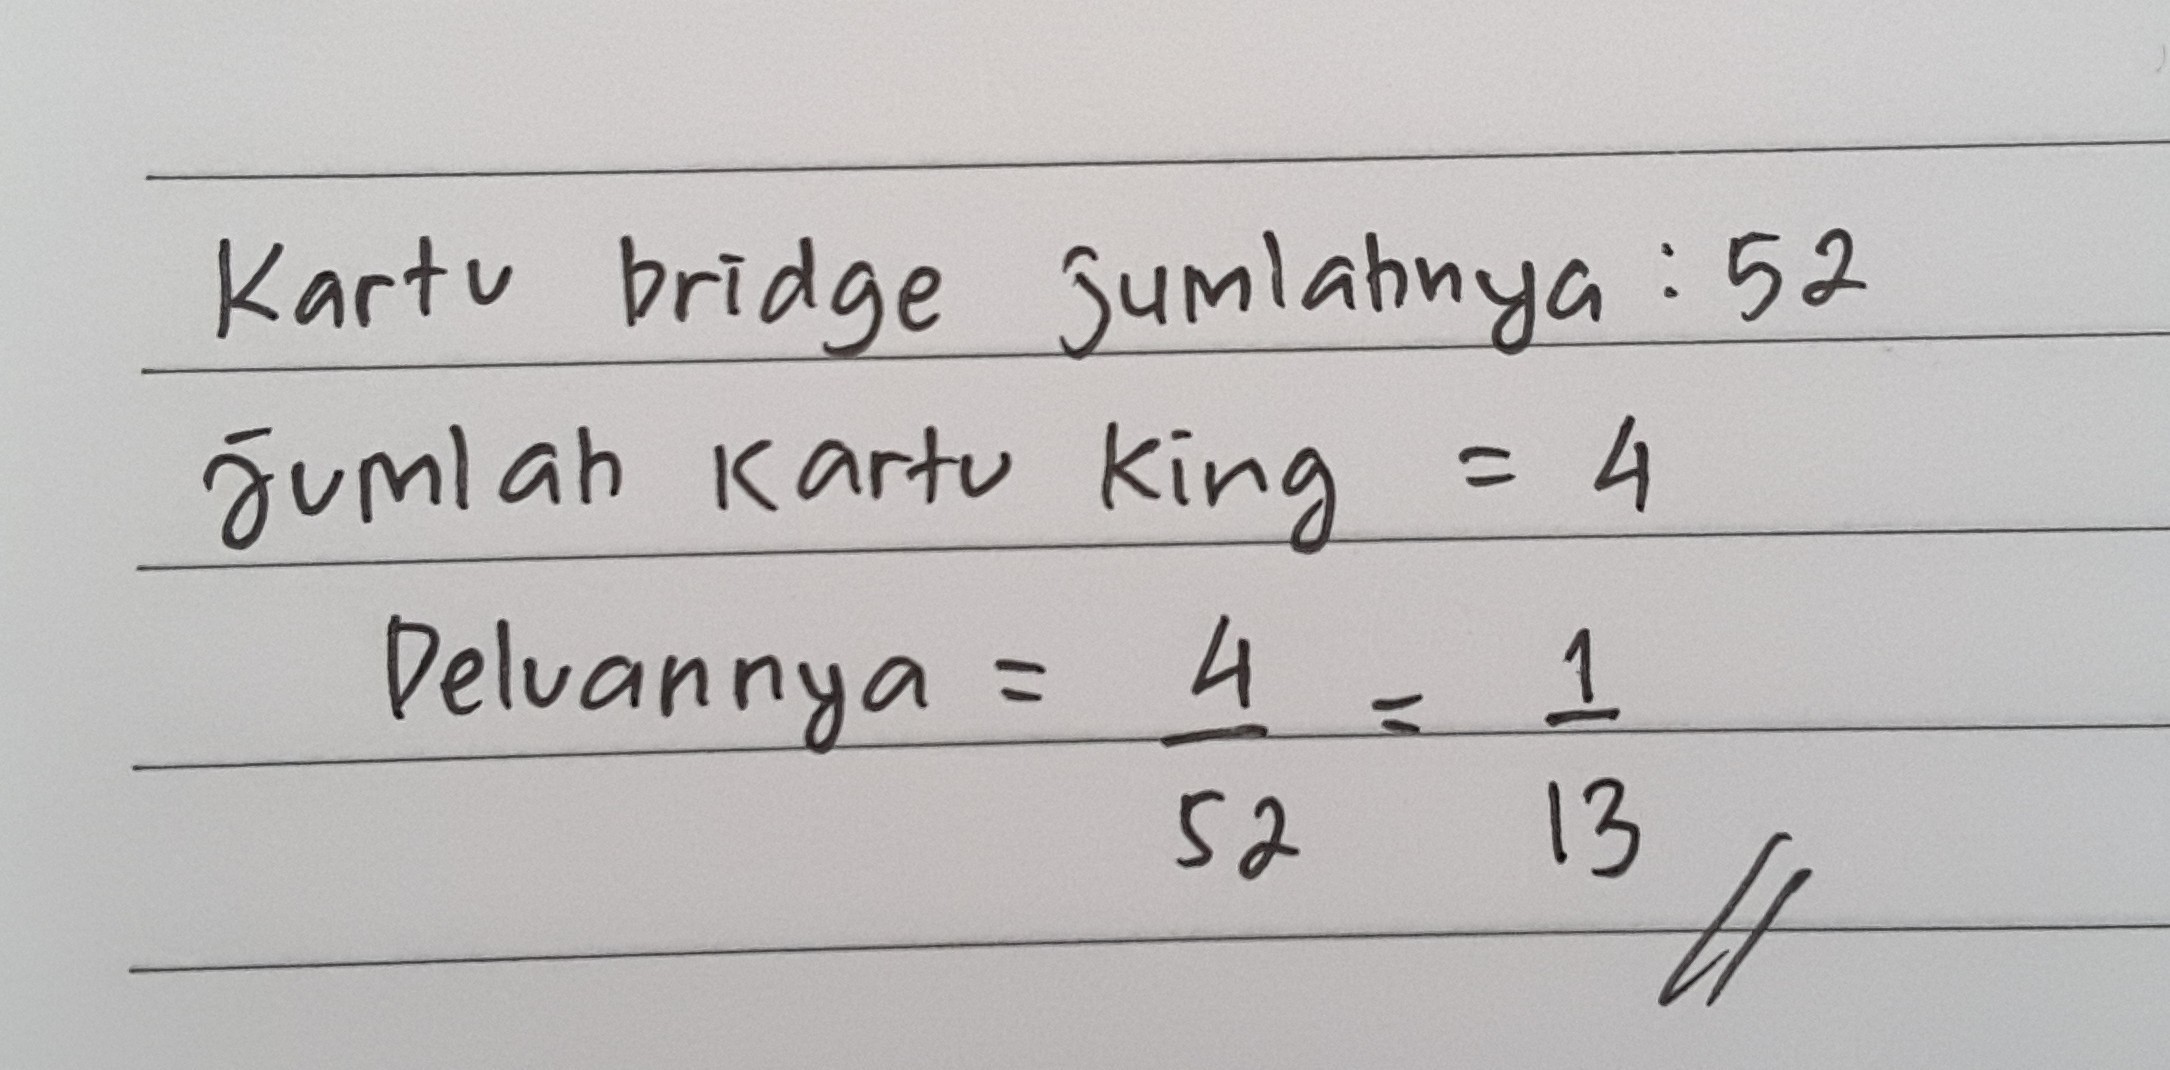 Kartu bridge jumlahnya : 52
jumlah kartu king = 4
Peluannya = 4/52 = 1/13